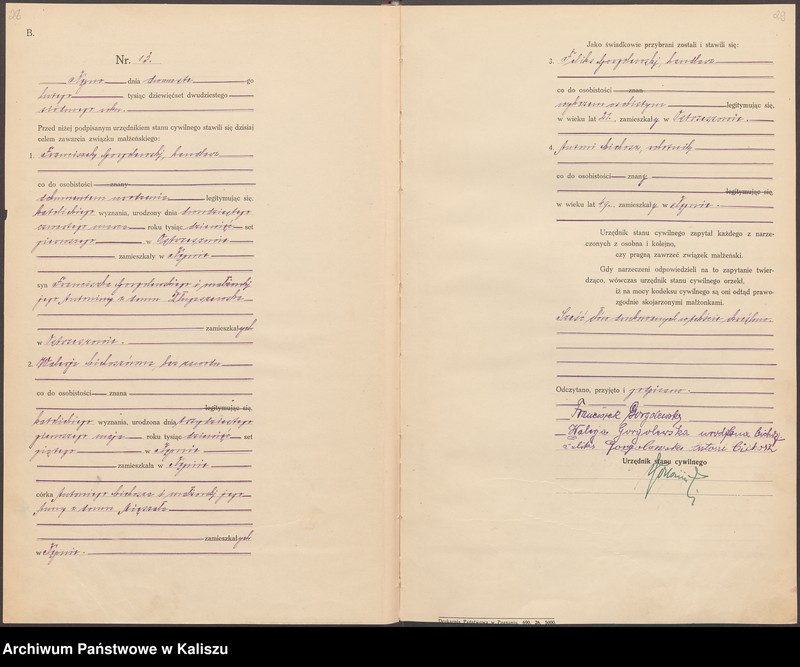 28
B.
Nr. 13.
dnia go
lutego tysiąc dziewięćset dwudziestego
siódmego roku.
Przed niżej podpisanym urzędnikiem stanu cywilnego stawili się dzisiaj
celem zawarcia związku małżeńskiego:
1. Franciszek Gorgolewski, handlarz
co do osobistości znany
dokumentem urodzenia legitymując się,
katolickiego wyznania, urodzony dnia dwudziestego
marca roku tysiąc dziewięć set
pierwszego w Ostrzeszowie
zamieszkały w
syn Franciszka Gorgolewskiego i małżonki
jego Antoniny z domu
zamieszkałych
w Ostrzeszowie.
2. Walerja bez zawodu
co do osobistości znana
legitymując się,
katolickiego wyznania, urodzona dnia trzydziestego
pierwszego maja roku tysiąc dziewięć set
piątego w
zamieszkała w
córka Antoniego i małżonki jego
Anny z domu
zamieszkałych
w
29
Jako świadkowie przybrani zostali i stawili się:
3. Feliks Gorgolewski, handlarz
co do osobistości znan
wykazem osobistym legitymując się,
w wieku lat zamieszkały w Ostrzeszowie.
4. Antoni
co do osobistości znany
legitymując się,
w wieku lat zamieszkały w
Urzędnik stanu cywilnego zapytał każdego z narze-
czonych z osobna i kolejno,
czy pragną zawrzeć związek małżeński.
Gdy narzeczeni odpowiedzieli na to zapytanie twier-
dząco, wówczas urzędnik stanu cywilnego orzekł,
iż na mocy kodeksu cywilnego są oni odtąd prawo-
zgodnie skojarzonymi małżonkami.
Sześć słów drukowanych wyżej skreślono.
Odczytano, przyjęto i podpisano.
Franciszek Gorgolewski
Walerja Gorgolewska urodzona
Feliks Gorgolewski Antoni
Urzędnik stanu cywilnego
Drukarnia Państwowa w Poznaniu. 690. 26. 5000.
Archiwum Państwowe w Kaliszu